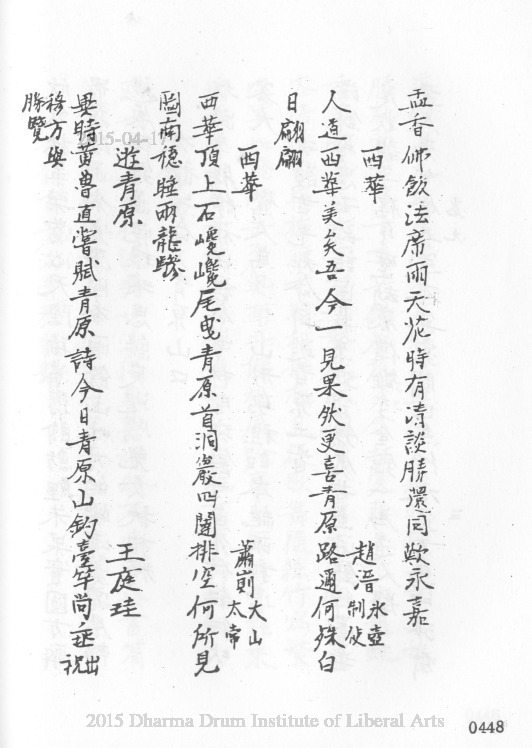 盂香佛飲法席雨天花時有清談勝還同歎永嘉
西華 趙溍冰壺制使
人道西華美矣吾今一見果然更喜青原路通何殊白
日翩翩
西華 蕭崱大山太常
西華頂上石巉巉尾曳青原首洞巖叫排空何所見
圖南穩睡兩龍驂
遊青原 王庭珪
異時黃魯直嘗賦青原詩今日青原山釣臺竿尚垂 出祝
穆方輿
勝覽
2015-04-17
2015 Dharma Drum Institute of Liberal Arts
0448